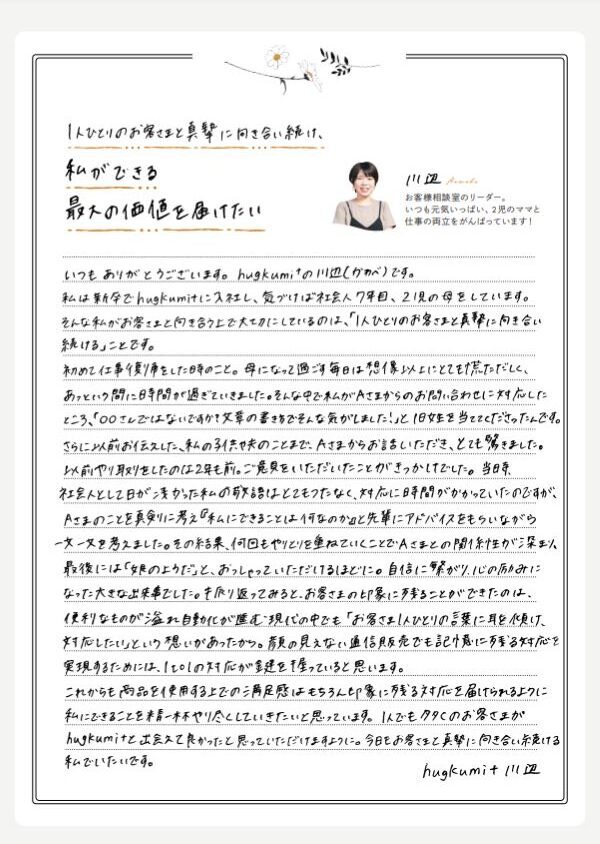 1人ひとりのお客さまと真摯に向き合い続け、
私ができる
最大の価値を届けたい
川辺
お客様相談室のリーダー。
いつも元気いっぱい、2児のママと
仕事の両立をがんばっています！
いつもありがとうございます。hugkumi+の川辺(かわべ)です。
私は新卒でhugkumi+に入社し、気づけば社会人7年目、2児の母をしています。
そんな私がお客さまと向き合う上で大切にしているのは、「1人ひとりのお客さまと真摯に向き合い
続ける」ことです。
初めて仕事復帰をした時のこと。母になって過ごす毎日は想像以上にとても慌ただしく、
あっという間に時間が過ぎていきました。そんな中で私がAさまからのお問い合わせに対応した
ところ、「〇〇さんではないですか？文章の書き方でそんな気がしました！」と旧姓を当ててくださったんです。
さらに以前お伝えした、私の子供や夫のことまで、Aさまからお話いただき、とても驚きました。
以前やり取りをしたのは2年も前。ご意見をいただいたことがきっかけでした。当時
社会人として日が浅かった私の敬語はとてもつたなく、対応に時間がかかっていたのですが、
Aさまのことを真剣に考え『私にできることは何なのか』と先輩にアドバイスをもらいながら
一文一文を考えました。その結果、何回もやりとりを重ねていくことでAさまとの関係性が深まり、
最後には「娘のようだ」と、おっしゃっていただけるほどに。自信に繋がり、心の励みに
なった大きな出来事でした。振り返ってみると、お客さまの印象に残ることができたのは、
便利なものが溢れ自動化が進む現代の中でも「お客さま1人ひとりの言葉に耳を傾け、
対応したい」という想いがあったから。顔の見えない通信販売でも記憶に残る対応を
実現するためには、1to1の対応が鍵を握っていると思います。
これからも商品を使用する上での満足感はもちろん印象に残る対応を届けられるように
私にできることを精一杯やり尽くしていきたいと思っています。1人でも多くのお客さまが
hugkumi+と出会えて良かったと思っていただけますように。今日もお客さまと真摯に向き合い続ける
私でいたいです。
hugkumi+ 川辺